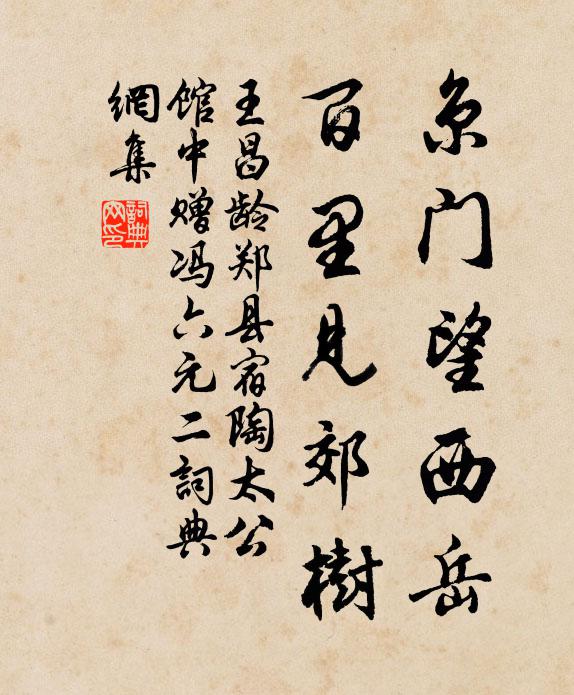 京门望西岳
百里见郊樹
王昌龄郑县宿陶太公
馆中赠冯六元二詞典
網集
詞典網印